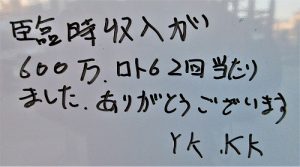 臨時収入が
600万、ロト6 2回当たり
ました、ありがとうございます
YK .KK